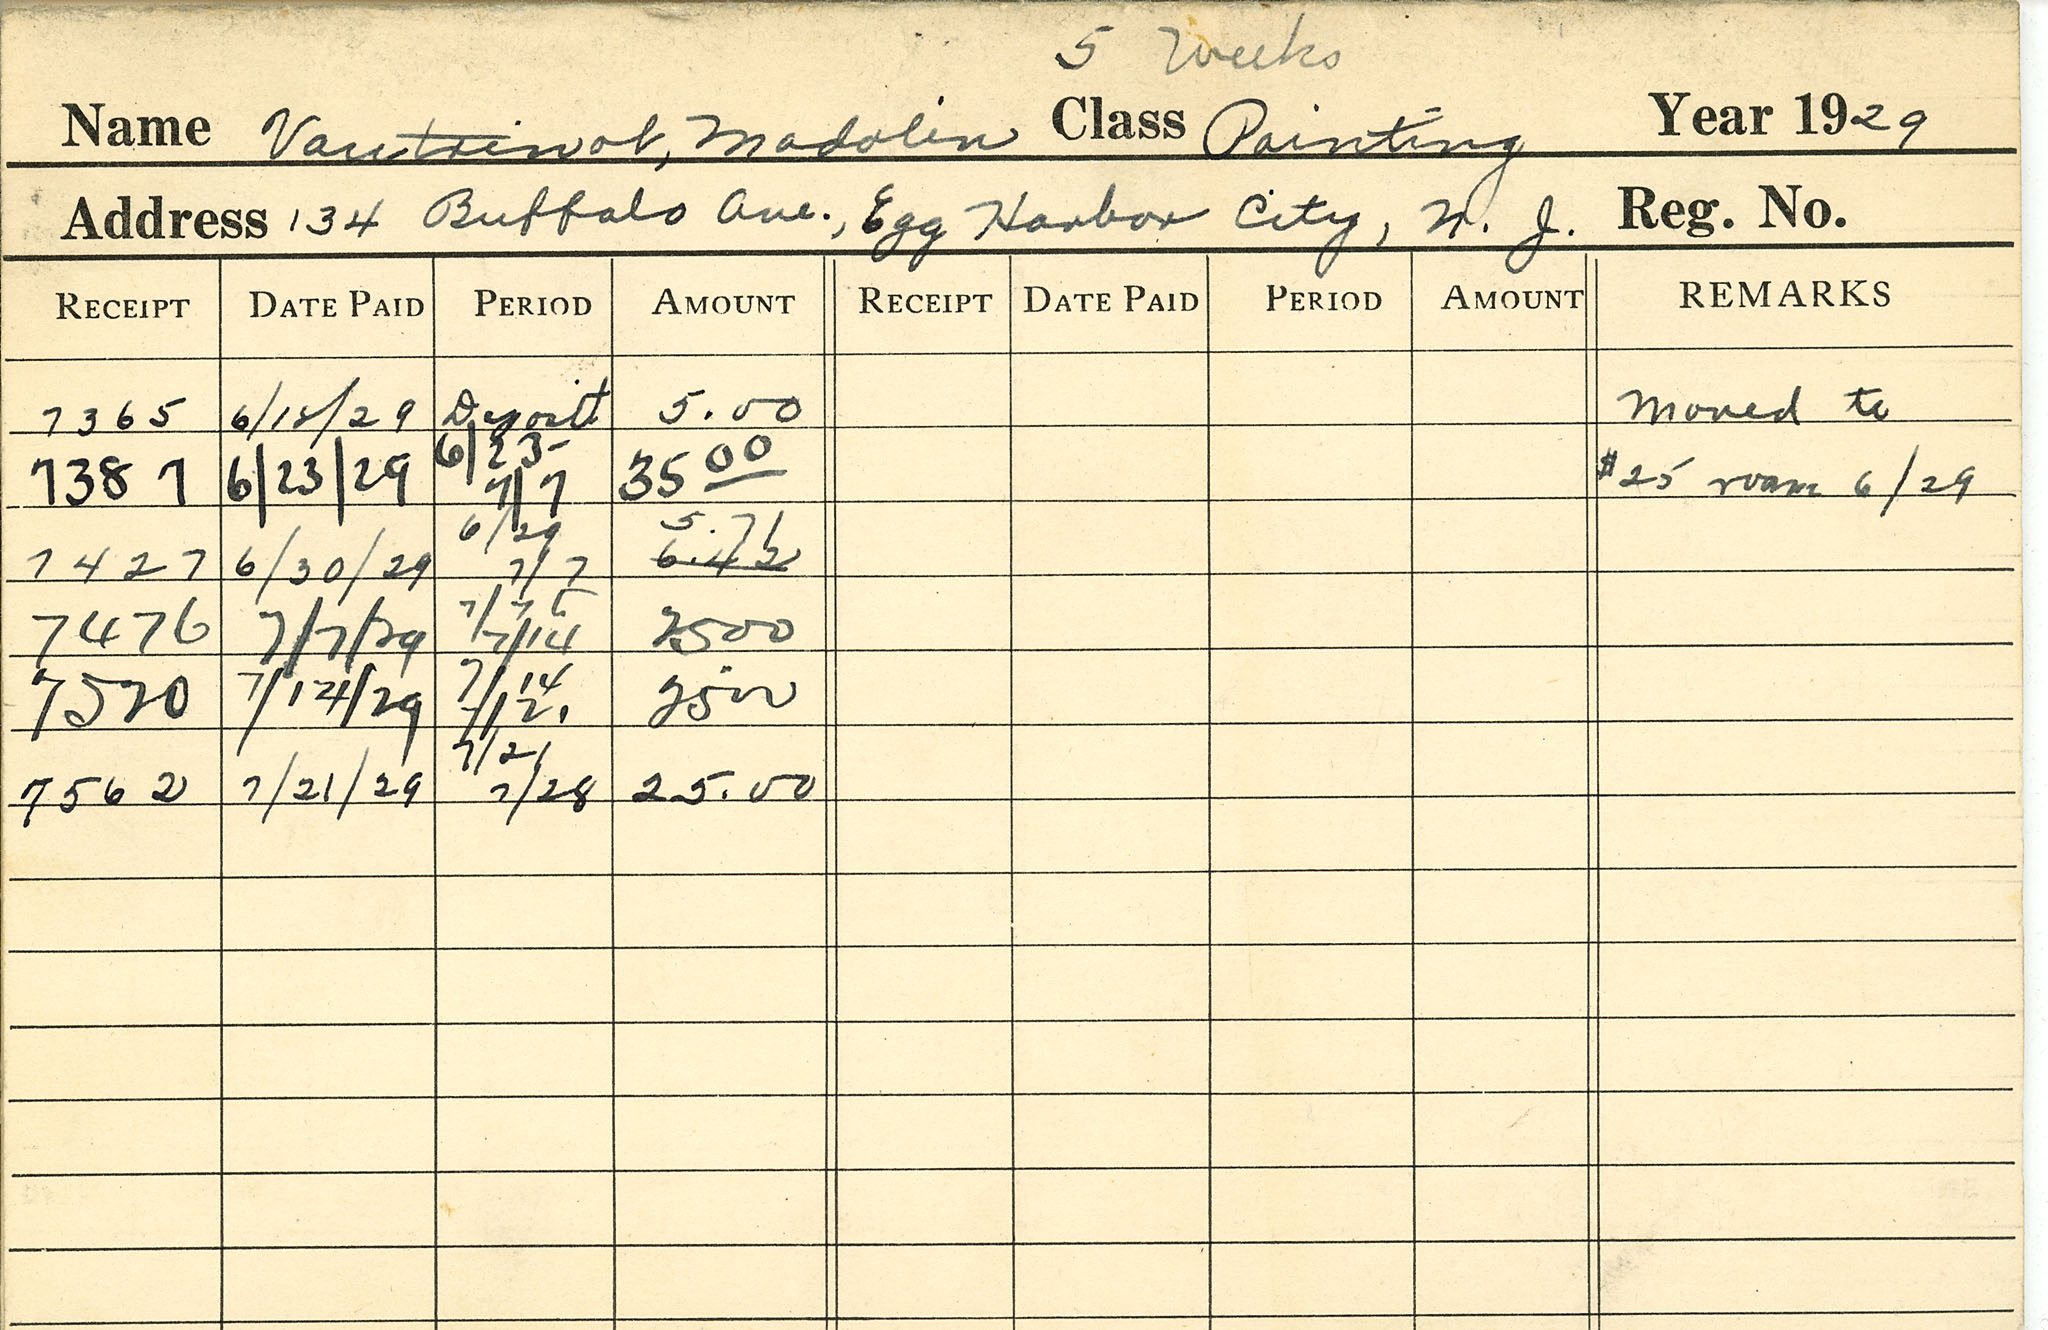 5 Weeks
Name Vautrinot, Madolin Class Painting Year 1929
Address 134 Buffalo Ave., Egg Harbor City, N. J. Reg. No.
RECEIPT DATE PAID PERIOD AMOUNT RECEIPT DATE PAID PERIOD AMOUNT REMARKS
7365 6/18/29 Deposit 5.00 Moved to
7387 6/23/29 6/23- 7/7 35 00 $25 room 6/29
7427 6/30/29 6/29 7/7 5.71 6.42
7476 7/7/29 7/7 to 7/14 2500
7520 7/14/29 7/14 7/21 2500
7562 7/21/29 7/21 7/28 25.00